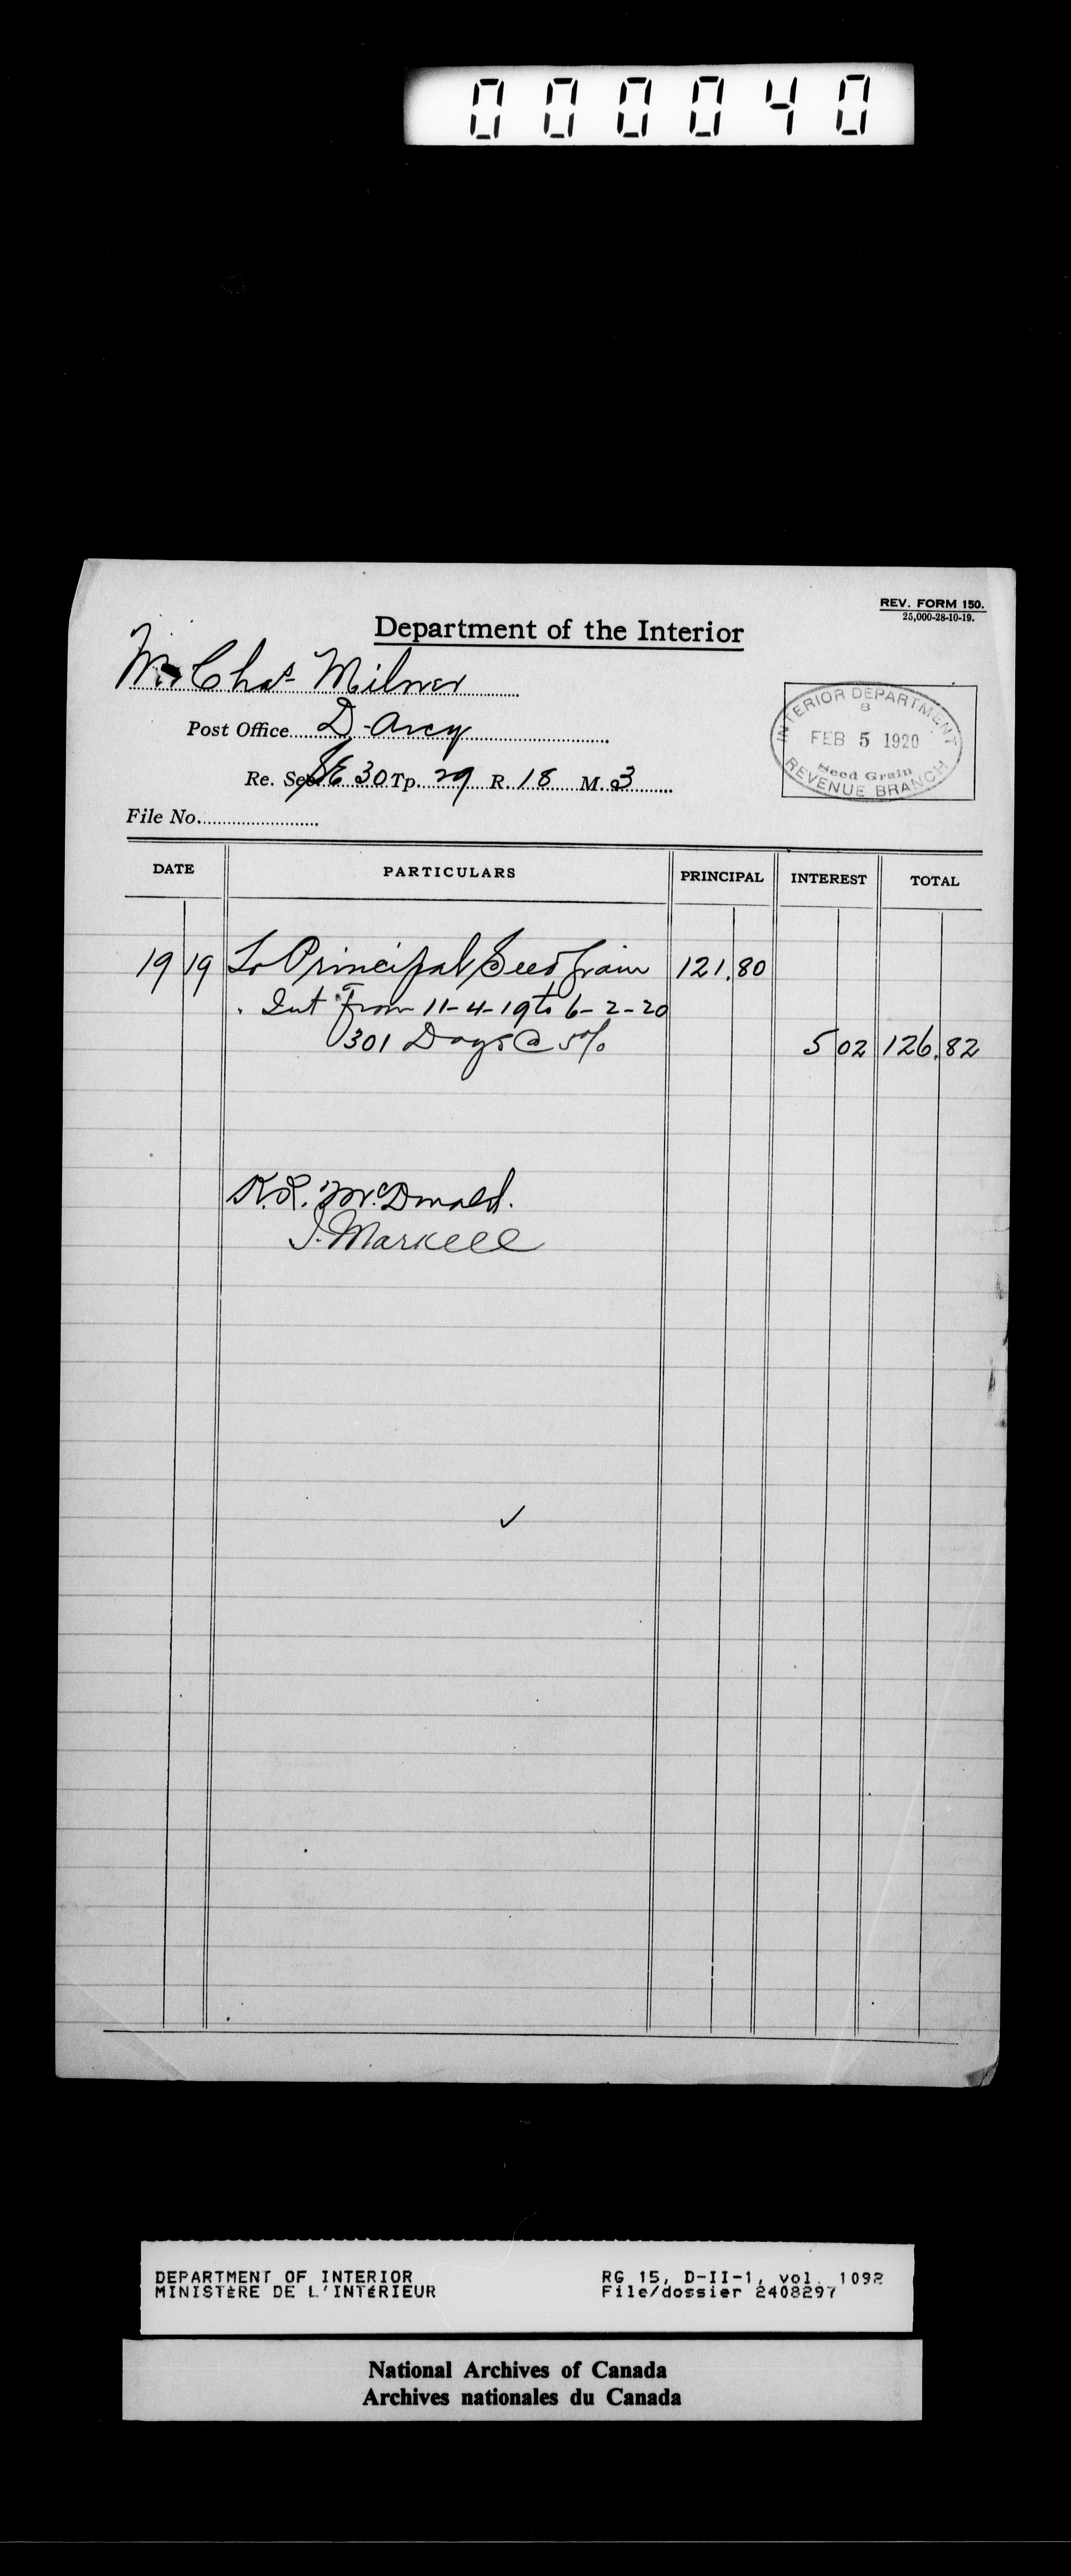 000040
REV. FORM 150.
25,000-28-10-19.
Department of the Interior
Mr Chas Milner
Post Office D-Arcy
Re. Sec. SE 30 Tp. 29 R. 18 M. 3
INTERIOR DEPARTMENT
8
FEB 5 1920
Seed Grain
REVENUE BRANCH
File No.
DATE PARTICULARS PRINCIPAL INTEREST TOTAL
1919 To Principal Seed Grain 121.80
" Int From 11-4-19 to 6-2-20
301 Days @ 5% 5 02 126.82
K.R. McDonald.
J. Markell
✓
DEPARTMENT OF INTERIOR RG 15, D-II-1, vol. 1092
MINISTÈRE DE L'INTÉRIEUR File/dossier 2408297
National Archives of Canada
Archives nationales du Canada